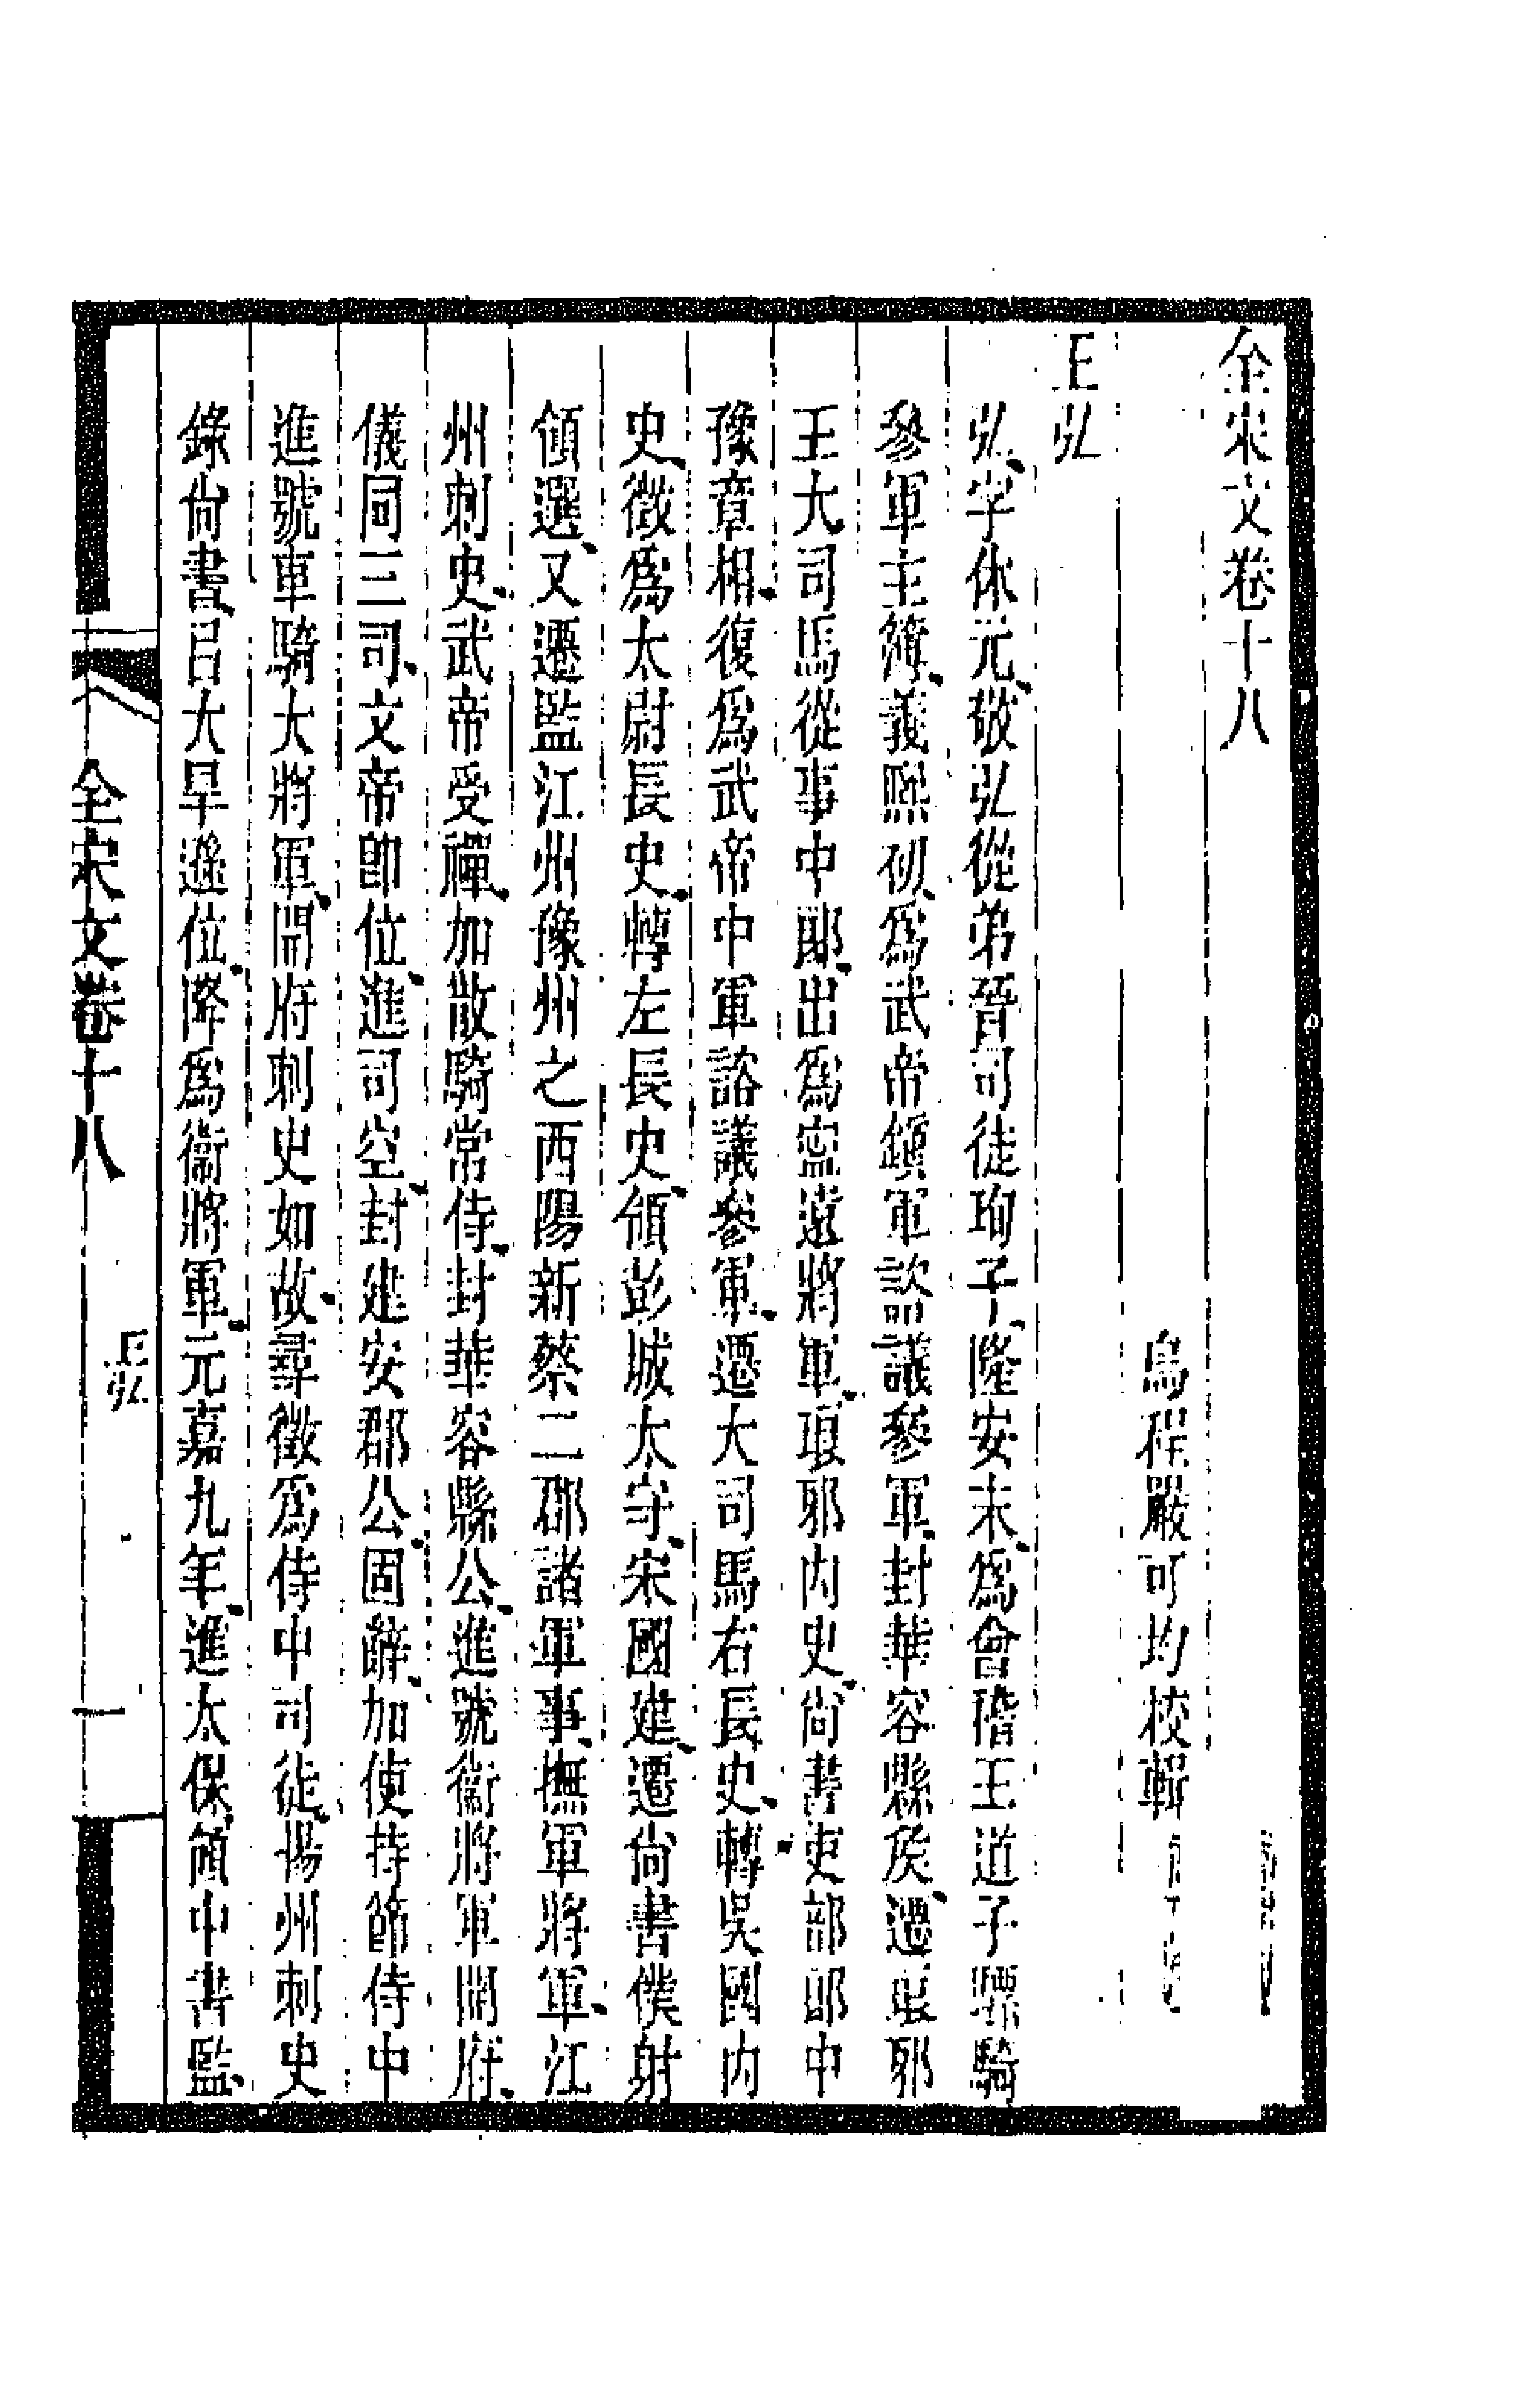 全宋文卷十八
烏程嚴可均校輯
王弘
弘字休元敬弘從弟晉司徒珣子隆安末爲會稽王道子驃騎
參軍主簿義熙初爲武帝鎮軍諮議參軍封華容縣矦遷琅邪
王大司馬從事中郎出爲寍遠將軍琅邪內史尚書吏部郎中
豫章相復爲武帝中軍諮議參軍遷大司馬右長史轉吳國內
史徵爲太尉長史轉左長史領彭城太守宋國建遷尚書僕射
領選又遷監江州豫州之西陽新蔡二郡諸軍事撫軍將軍江
州刺史武帝受禪加散騎常侍封華容縣公進號衞將軍開府
儀同三司文帝卽位進司空封建安郡公固辭加使持節侍中
進號車騎大將軍開府刺史如故尋徵爲侍中司徒揚州刺史
錄尚書㠯大旱遜位降爲衞將軍元嘉九年進太保領中書監
全宋文卷十八
王弘
一